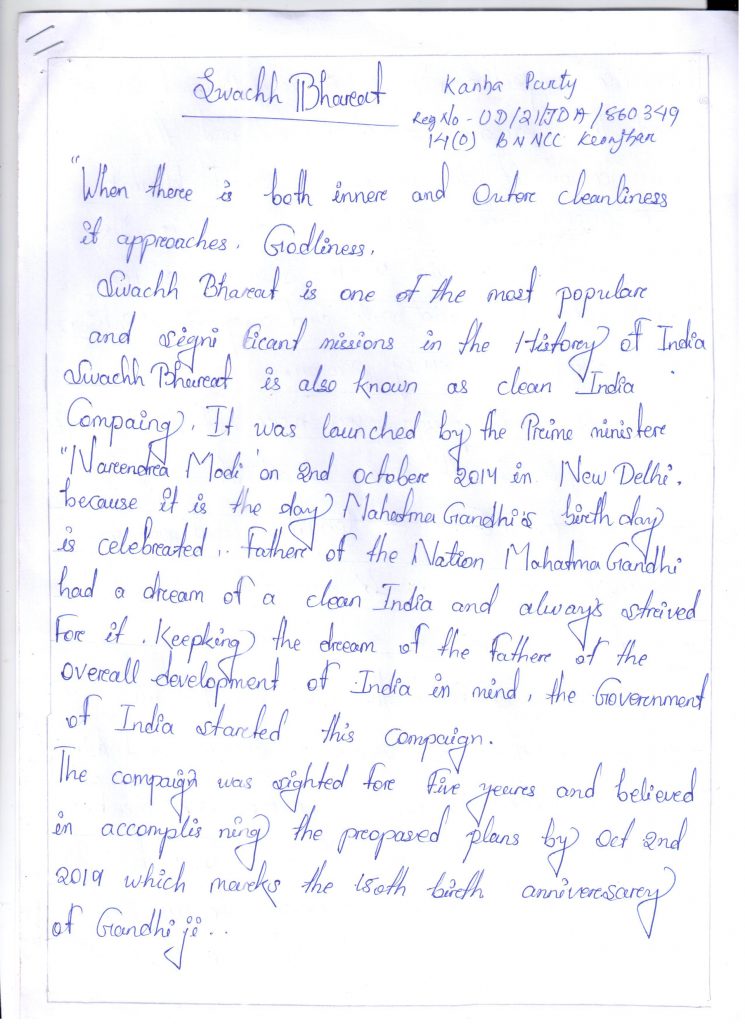 Swachh Bhareat
Kanha Party
Reg No - OD/21/JDA/860349
14(O) BN NCC Keonjhar
"When there is both innere and Outere cleanliness
it approaches. Godliness.
Swachh Bhareat is one of the most populare
and signi ficant missions in the Historey of India
Swachh Bhareat is also known as clean India
Compaing. It was launched by the Preime ministere
"Nareendrea Modi on 2nd octobere 2014 in New Delhi.
because it is the day Mahatma Gandhi's birethday
is celebreated.. Fathere of the Nation Mahatma Gandhi
had a dream of a clean India and always streived
Fore it. Keepking the dream of the fathere of the
overeall development of India in mind, the Government
of India starcted this compaign.
The compaign was sighted fore five yeares and believed
in accomplis ning the preoposed plans by Oct 2nd
2019 which mareks the 150th bireth anniveressarey
of Gandhi ji..